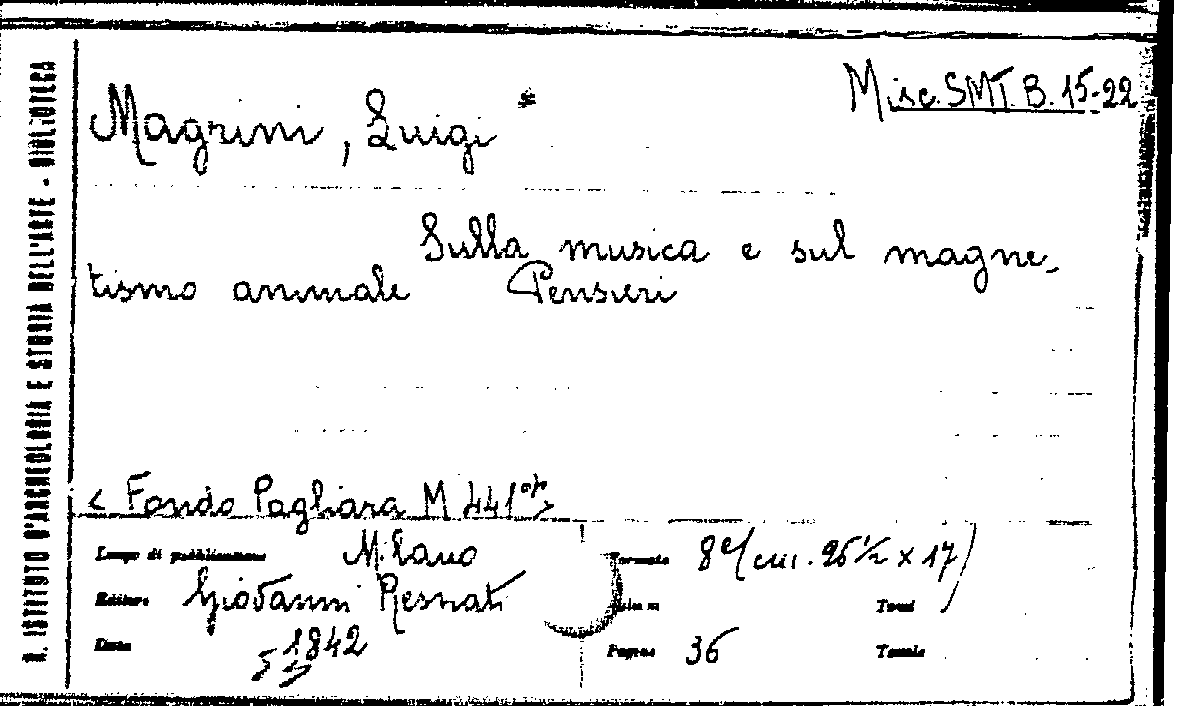 Misc. SMT. B. 15-22
Magrini, Luigi *
Sulla musica e sul magne-
tismo animale Pensieri
< Fondo Pagliara M 441 >
Luogo di pubblicazione Milano
Formato 8° (cm. 26 1/2 x 17)
Editore Giovanni Resnati
Tomi
Data 1842
Pagine 36
Tavole
R. ISTITUTO D'ARCHEOLOGIA E STORIA DELL'ARTE - BIBLIOTECA